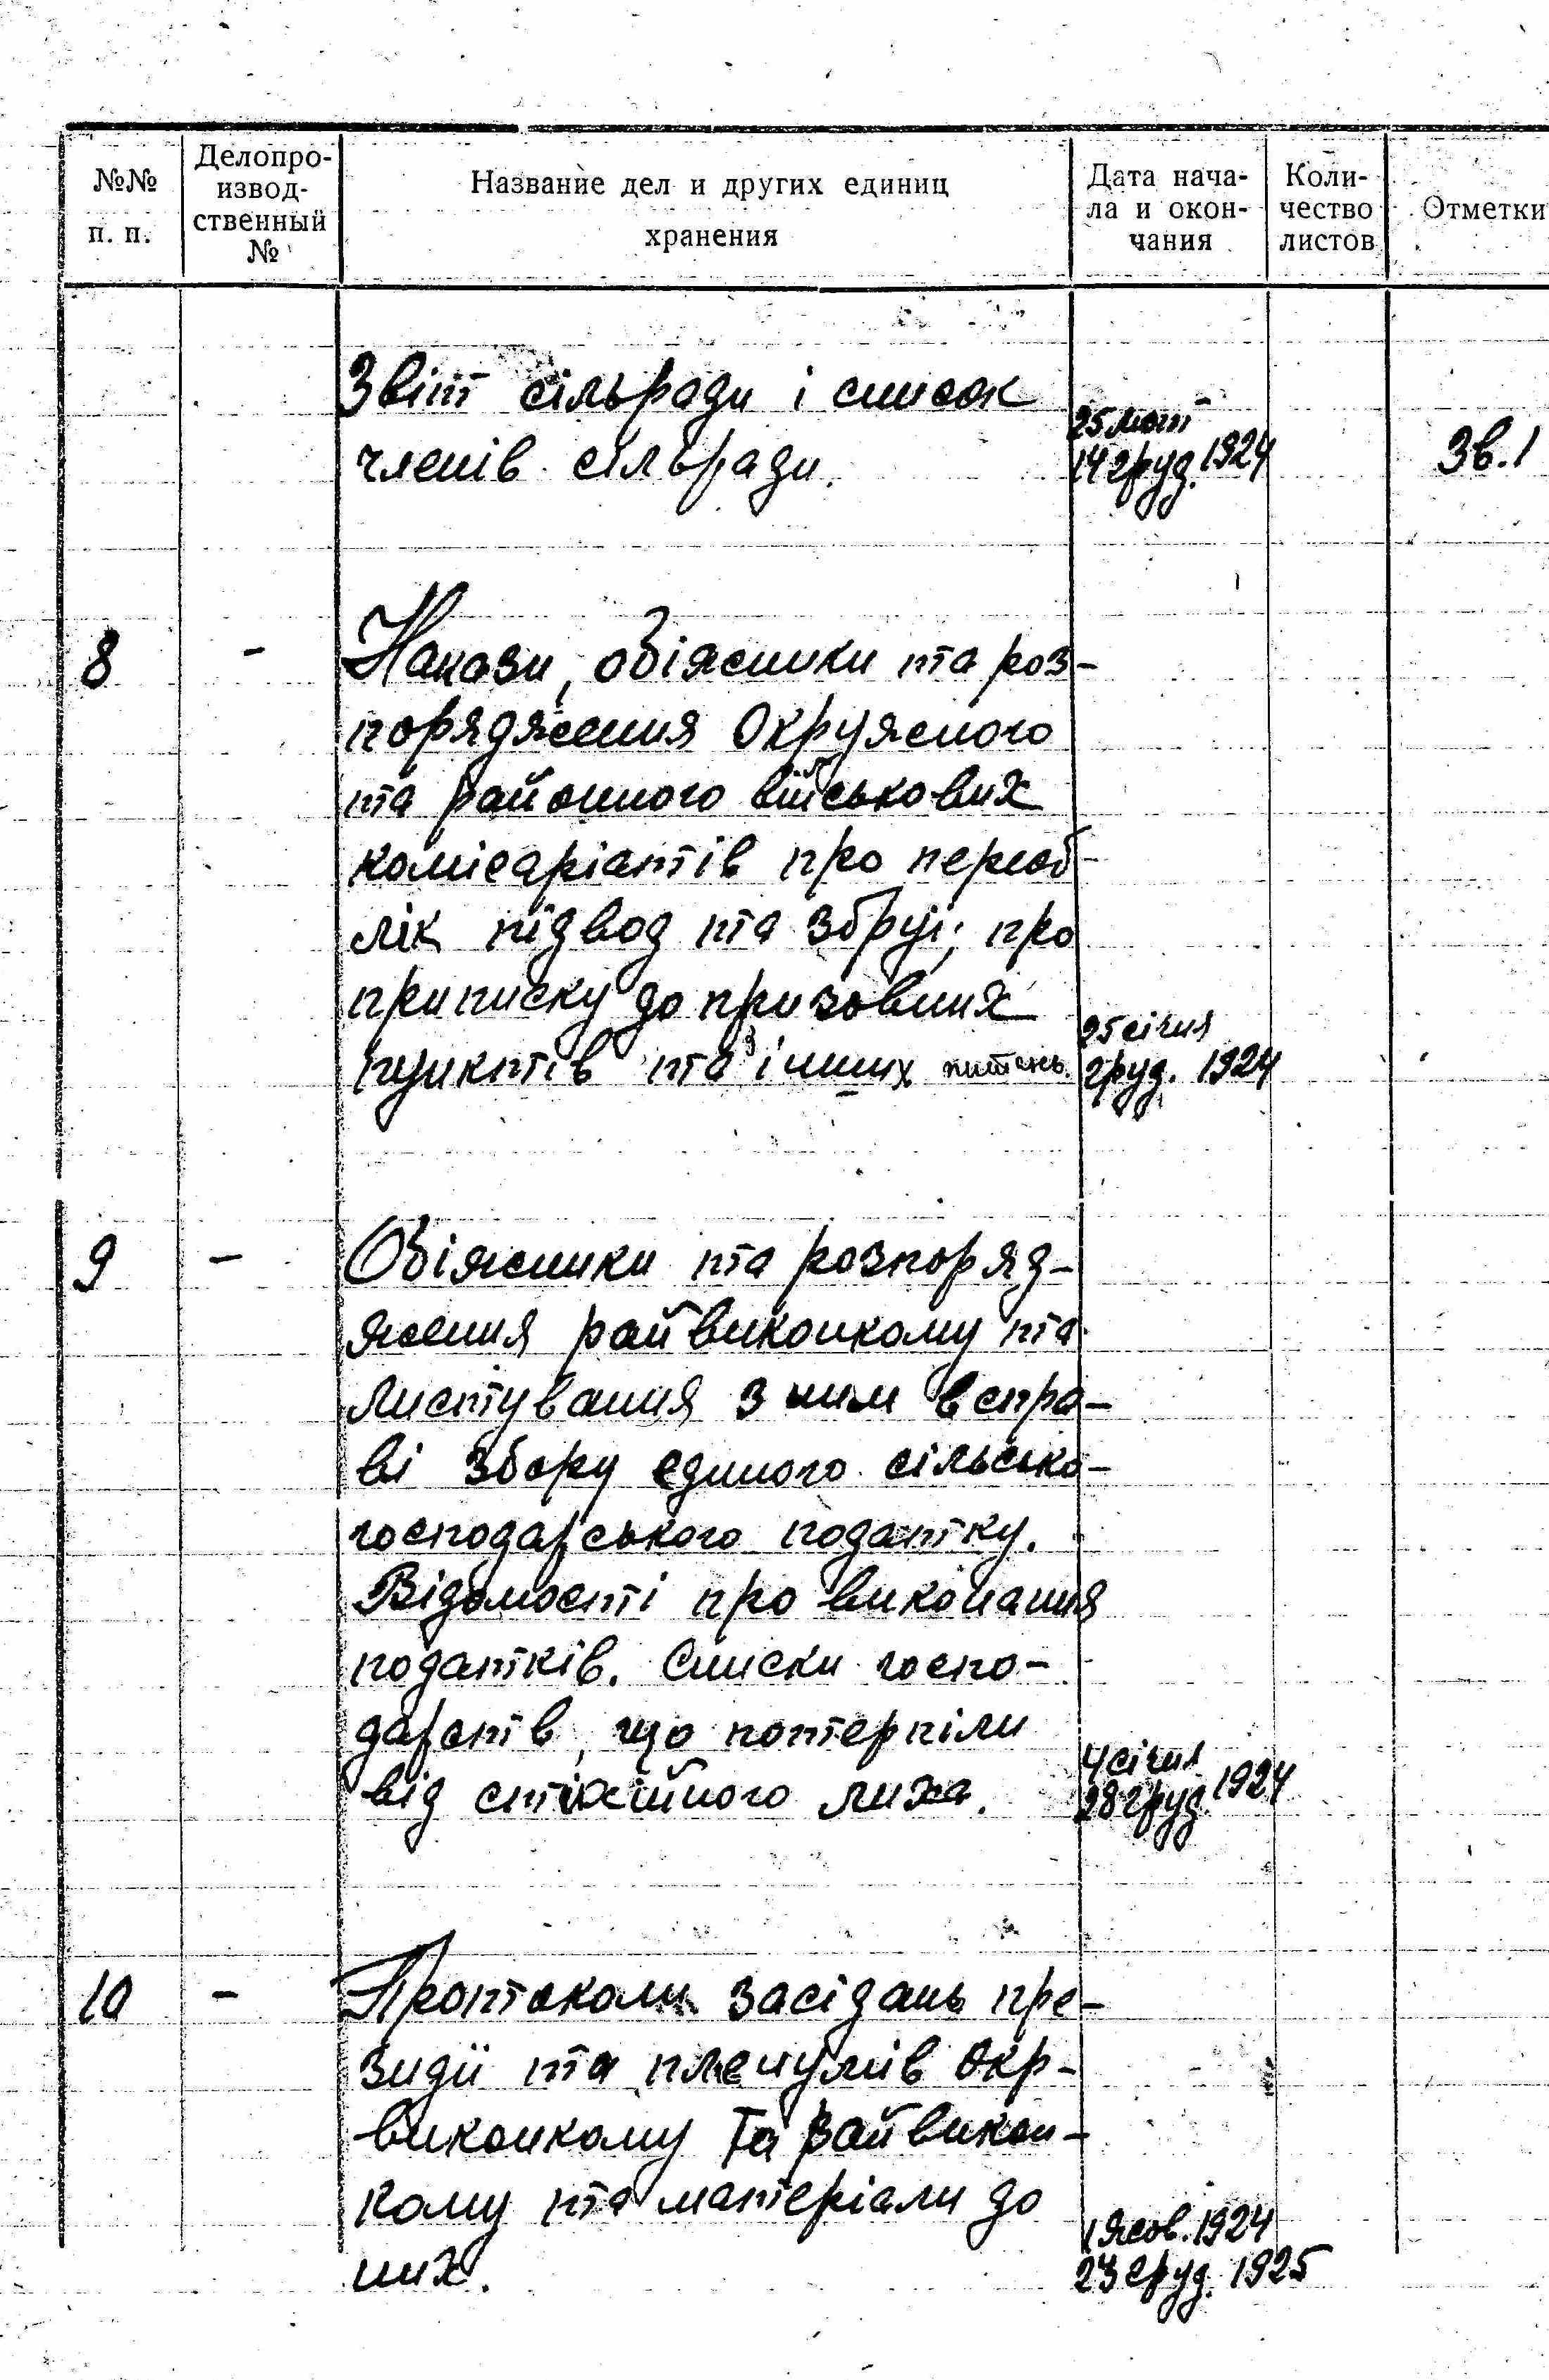 №№ п. п.
Делопро-
извод-
ственный
№
Название дел и других единиц
хранения
Дата нача-
ла и окон-
чания
Коли-
чество
листов
Отметки
Звіт сільради і список
членів сільради.
25 лют
14 груд. 1924
Зв. 1
8
-
Накази, обіжники та роз-
порядження Окружного
та районного військових
комісаріатів про переоб-
лік підвод та збруї; про
приписку до призовних
пунктів та з інших питань.
25 січня
груд. 1924
9
-
Обіжники та розпоряд-
ження райвиконкому та
листування з ним в спра-
ві збору єдиного сільсько-
господарського податку.
Відомості про виконання
податків. Списки госпо-
дарств, що потерпіли
від стихійного лиха.
4 січня
28 груд. 1924
10
-
Протоколи засідань пре-
зидії та пленумів Окр-
виконкому та Райвикон-
кому та матеріали до
них.
1 жов. 1924
23 груд. 1925